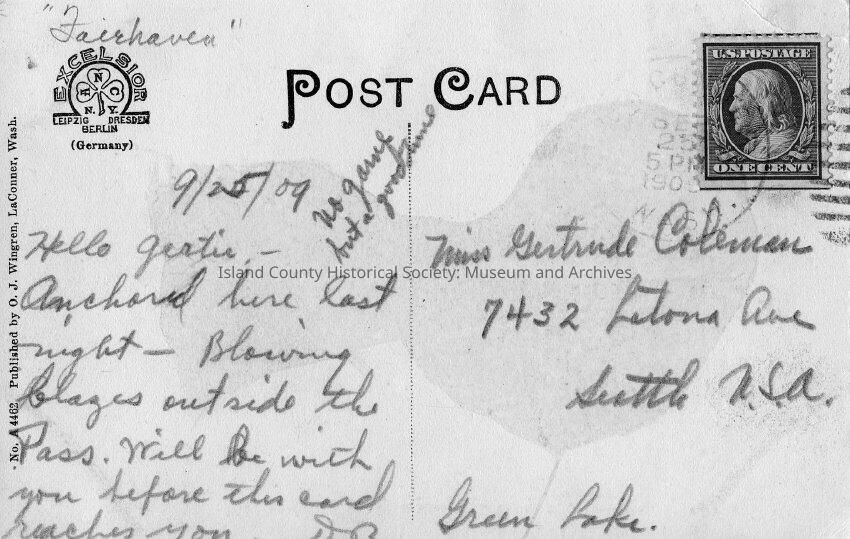 "Fairhaven"
EXCELSIOR
A N C
N.Y.
LEIPZIG DRESDEN
BERLIN
(Germany)
POST CARD
U.S. POSTAGE
ONE CENT
SE
25
5 PM
190
No. A 4462. Published by O. J. Wingren, LaConner, Wash.
9/25/09
No game
but a good time
Hello Gertie, —
Anchored here last
night — Blowing
blazes outside the
Pass. Will be with
you before this card
reaches you
Island County Historical Society: Museum and Archives
Miss Gertrude Coleman
7432 Latona Ave
Seattle U.S.A.
Green Lake.